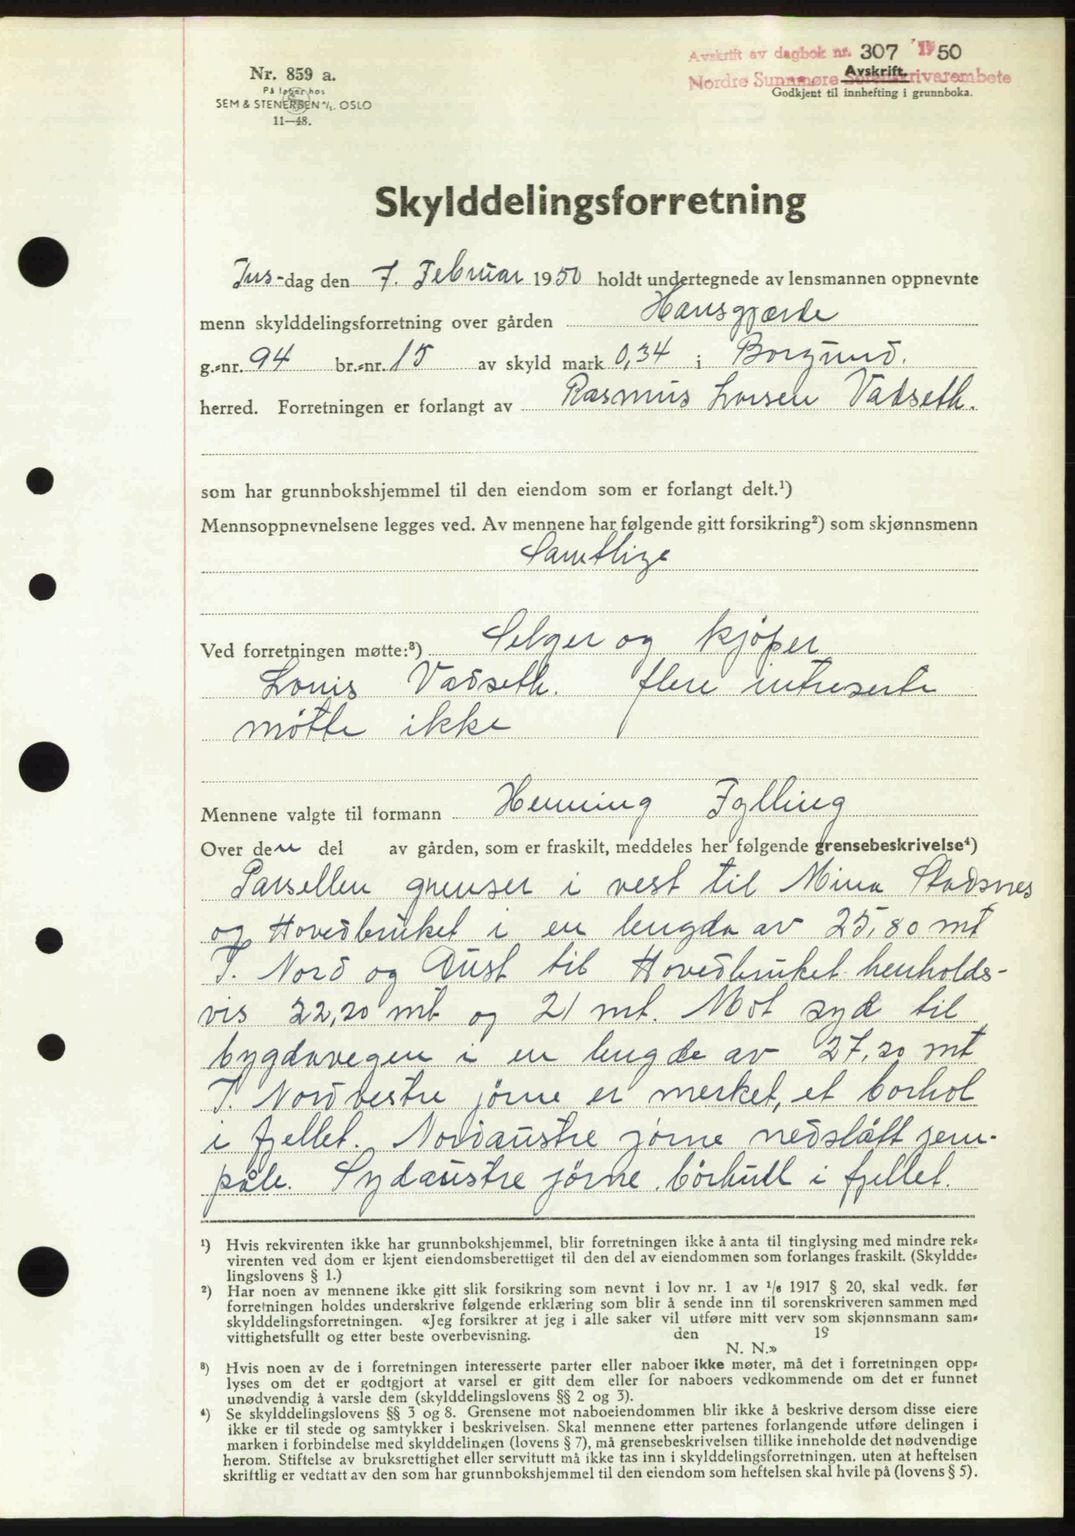 Avskrift av dagbok nr. 307 1950
Nordre Sunnmøre Sorenskrivarembete
Avskrift.
Godkjent til innhefting i grunnboka.
Nr. 859 a.
På lager hos
SEM & STENERSEN A/S. OSLO
11—48.
Skylddelingsforretning
Tus-dag den 7. Februar 1950 holdt undertegnede av lensmannen oppnevnte
menn skylddelingsforretning over gården Hansgjærde
g.-nr. 94 br.-nr. 15 av skyld mark 0,34 i Borgund.
herred. Forretningen er forlangt av Rasmus Larsen Vadseth.
som har grunnbokshjemmel til den eiendom som er forlangt delt.¹)
Mennsoppnevnelsene legges ved. Av mennene har følgende gitt forsikring²) som skjønnsmenn
Samtlige
Ved forretningen møtte:³) Selger og kjøper
Louis Vadseth. flere intreserte
møtte ikke
Mennene valgte til formann Henning Fylling
Over den del av gården, som er fraskilt, meddeles her følgende grensebeskrivelse⁴)
Parsellen grenser i vest til Mina Stadsnes
og Hovedbruket i en lengda av 25,80 mt
I. Nord og Aust til Hovedbruket henholds-
vis 22,20 mt og 21 mt. Mot syd til
bygdavegen i en lengde av 27,20 mt
I. Nordvestre jørne er merket, et borhol
i fjellet. Nordaustre jørne nedslått jern-
påle. Sydaustre jørne børhull i fjellet.
¹) Hvis rekvirenten ikke har grunnbokshjemmel, blir forretningen ikke å anta til tinglysing med mindre rek-
virenten ved dom er kjent eiendomsberettiget til den del av eiendommen som forlanges fraskilt. (Skyldde-
lingslovens § 1.)
²) Har noen av mennene ikke gitt slik forsikring som nevnt i lov nr. 1 av 1/6 1917 § 20, skal vedk. før
forretningen holdes underskrive følgende erklæring som blir å sende inn til sorenskriveren sammen med
skylddelingsforretningen. «Jeg forsikrer at jeg i alle saker vil utføre mitt verv som skjønnsmann sam-
vittighetsfullt og etter beste overbevisning. den 19
N. N.»
³) Hvis noen av de i forretningen interesserte parter eller naboer ikke møter, må det i forretningen opp-
lyses om det er godtgjort at varsel er gitt dem eller for naboers vedkommende om det er funnet
unødvendig å varsle dem (skylddelingslovens §§ 2 og 3).
⁴) Se skylddelingslovens §§ 3 og 8. Grensene mot naboeiendommen blir ikke å beskrive dersom disse eiere
ikke er til stede og samtykker i beskrivelsen. Skal mennene etter partenes forlangende utføre delingen i
marken i forbindelse med skylddelingen (lovens § 7), må grensebeskrivelsen tillike inneholde det nødvendige
herom. Stiftelse av bruksrettighet eller servitutt må ikke tas inn i skylddelingsforretningen, uten at heftelsen
skriftlig er vedtatt av den som har grunnbokshjemmel til den eiendom som heftelsen skal hvile på (lovens § 5).